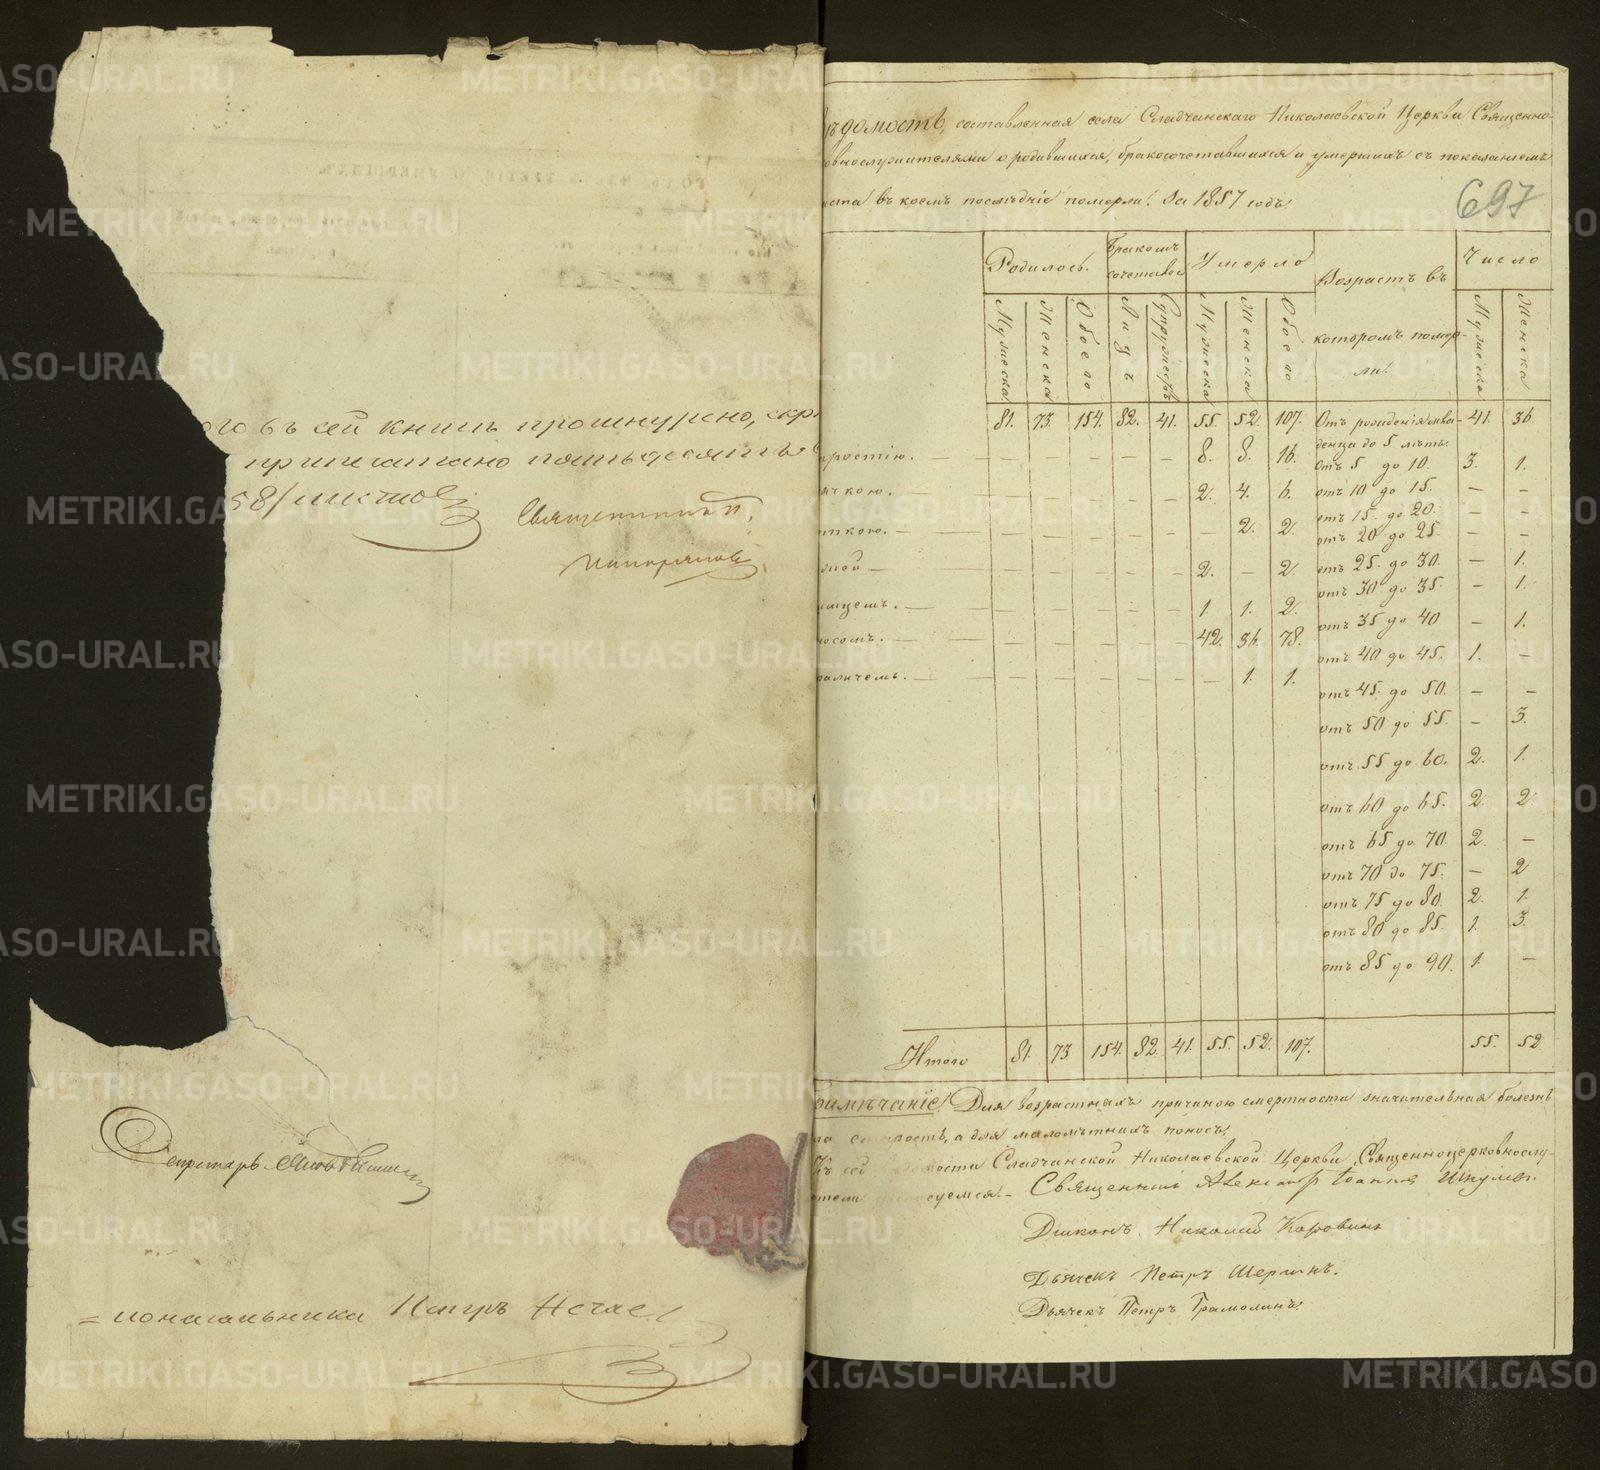 ого въ сей книгѣ прошнурено, скр
припечатано пятьдесятъ
58/ листовъ
Священникъ П.
Секретарь
Петръ Нечае
ѣдомость, составленная села Сладчанскаго Николаевской Церкви Священно-
овнослужителями о родившихся, бракосочетавшихся и умершихъ съ показаніемъ
ста въ коемъ послѣдніе померли. За 1857 годъ.
697
Родилось. Бракомъ сочетавш Умерло Возрастъ въ которомъ помер-ли. Число
Мужеска Женска Обоего Лицъ Супружествъ Мужеска Женска Обоего Мужеска Женска
81. 73. 154. 82. 41. 55. 52. 107. Отъ рожденія млад-денца до 5 лѣтъ. 41. 36
аростію. — — — — — — 8. 8. 16. отъ 5 до 10. 3. 1.
ячкою. — — — — — — 2. 4. 6. отъ 10 до 15. — —
отъ 15. до 20. — —
ткою. — — — — — — — 2. 2. отъ 20 до 25. — —
— — — — — — 2. — 2. отъ 25. до 30. — 1.
отъ 30 до 35. — 1.
— — — — — — 1. 1. 2. отъ 35 до 40 — 1.
носомъ. — — — — — — 42. 36. 78. отъ 40 до 45. 1. —
раличемъ. — — — — — — — 1. 1. отъ 45. до 50. — —
отъ 50 до 55. — 3.
отъ 55 до 60. 2. 1.
отъ 60 до 65. 2. 2
отъ 65 до 70. 2. —
отъ 70 до 75. — 2
отъ 75 до 80. 2. 1.
отъ 80 до 85. 1. 3.
отъ 85 до 90. 1. —
Итого 81. 73 154. 82. 41. 55. 52. 107. 55. 52
римѣчаніе. Для возрастныхъ причиною смертности значительная болезнь
ла старость, а для малолѣтнихъ поносъ.
Къ сей Сладчанской Николаевской Церкви Священноцерковнослу-
Священникъ Александръ Іоанновъ
Діаконъ Николай Коровинъ
Дьячекъ Петръ
Дьячекъ Петръ Грамолинъ
METRIKI.GASO-URAL.RU